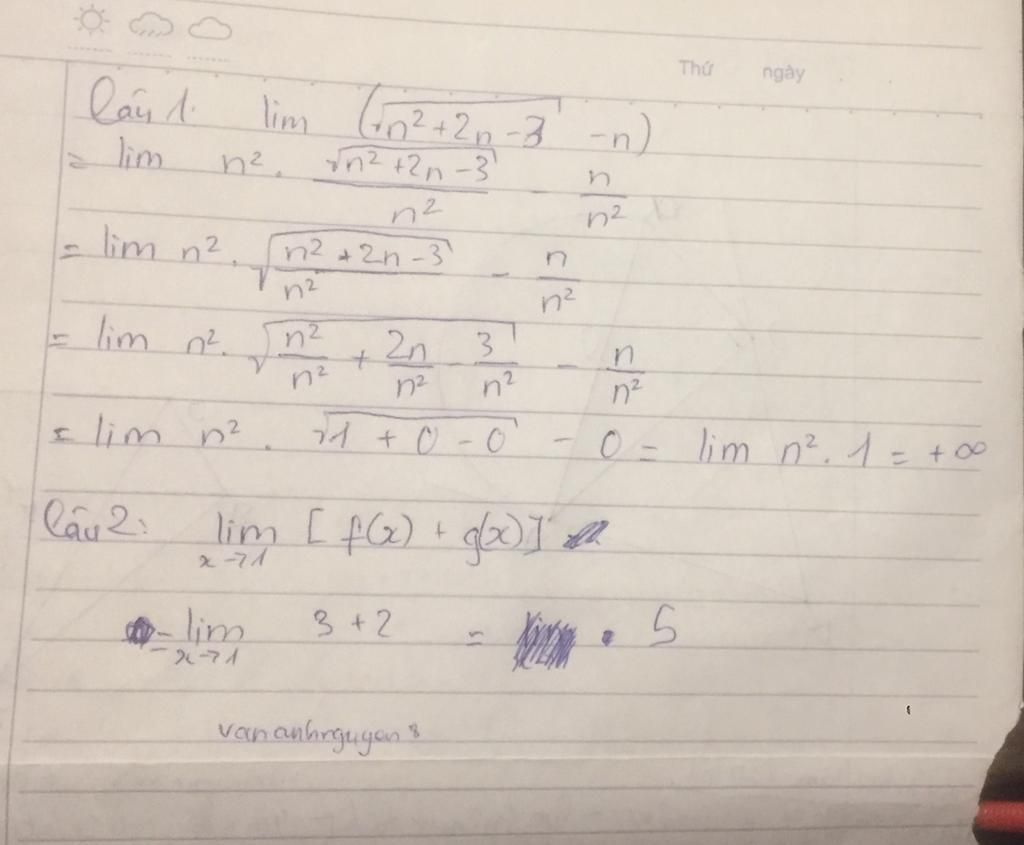 Thứ ngày
Câu 1. lim (√(n²+2n-3) -n)
= lim n². √(n²+2n-3)/n² - n/n²
= lim n². √((n²+2n-3)/n²) - n/n²
= lim n². √(n²/n² + 2n/n² - 3/n²) - n/n²
= lim n². √(1+0-0) - 0 = lim n². 1 = +∞
Câu 2: lim x→1 [f(x) + g(x)]
= lim x→1 3+2 = 5
vananhnguyen8